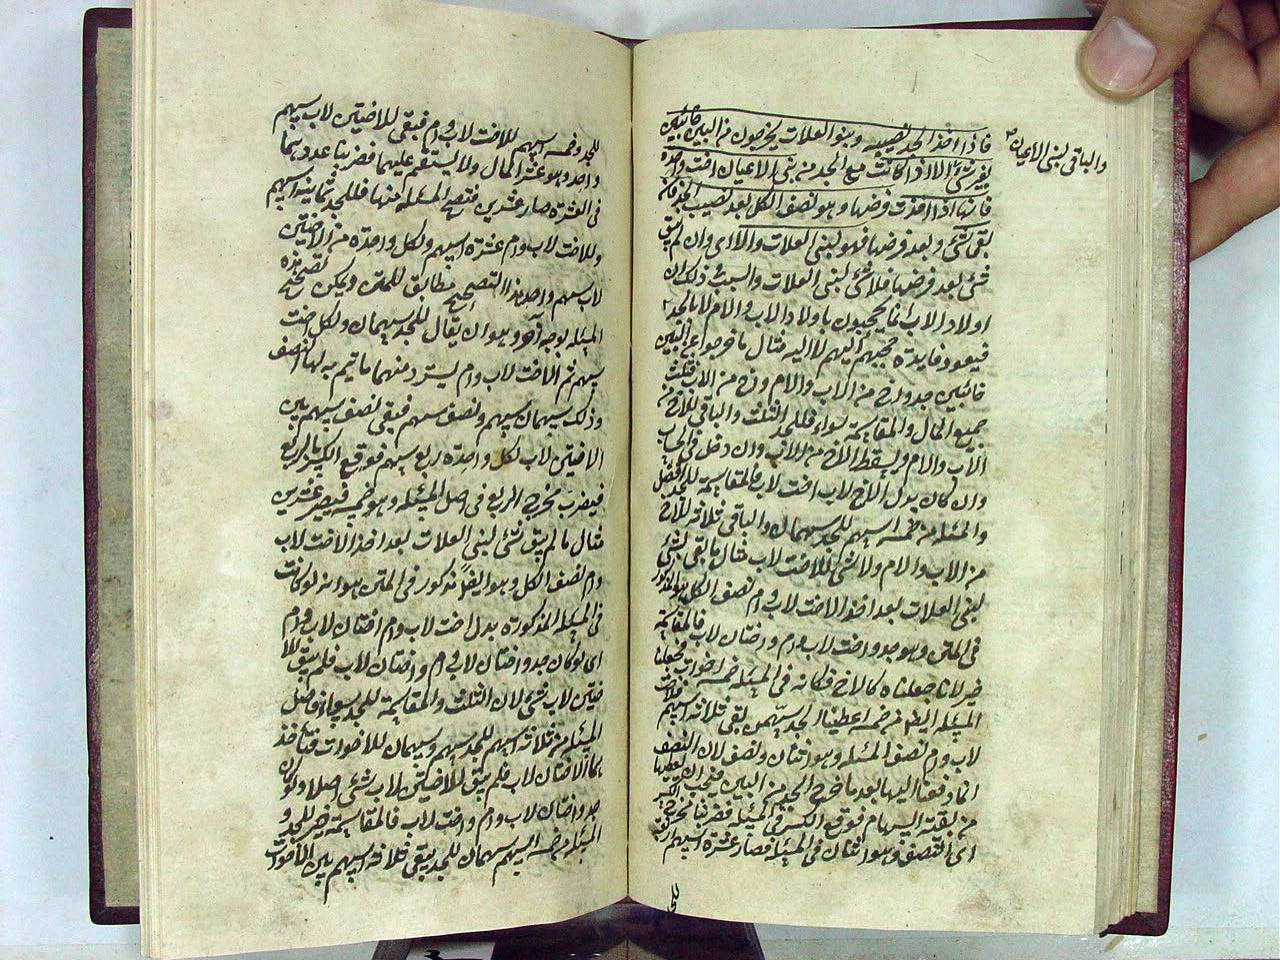 فاذا اخذ الجد نصيبه وبنو العلات يخرجون من البين خائبين
والباقى لبنى الاعيان
بغير شئ الا اذا كانت مع الجد من بنى الاعيان اخت واحدة
فانها اذا اخذت فرضها وهو نصف الكل بعد نصيب الجد فان
بقى شئ وبعد فرضها فهو لبنى العلات والا اى وان لم يبق
شئ بعد فرضها فلا شئ لبنى العلات والسبب فى ذلك ان
اولاد الاب انما يحجبون باولاد الاب والام لا بالجد
فيعود فايدة حجبهم اليهم لا اليه مثال ما خرجوا عن البين
خائبين جد واخ من الاب والام واخ من الاب فثلث
جميع المال والمقاسمة سواء فللجد الثلث والباقى للاخ من
الاب والام ويسقط الاخ من الاب وان دخل فى الحساب
وان كان بدل الاخ لاب اخت لاب فالمقاسمة للجد افضل
والمسئله من خمسة اسهم للجد سهمان والباقى ثلاثة للاخ
من الاب والام ولا شئ للاخت لاب مثال ما بقى شئ
لبنى العلات بعد اخذ الاخت لاب وام نصف الكل هو المذكور
فى المتن وهو جد واخت لاب وام واختان لاب فالمقاسمة
خير لانا جعلناه كالاخ فكانه فى المسئله خمسة اخوات فجعلنا
المسئله ايضا من خمسة اعطينا الجد سهمين بقى ثلاثة اسهم
لاب وام نصف المسئله وهو اثنان ونصف لان النصف
انما دفعنا اليها بعد ما خرج الجد من البين فيجب ان نعطيها
من بقية السهام فوقع الكسر فى المسئله فضربنا مخرج الكسر
اى النصف وهو اثنان فى المسئله فصار عشرة اسهم اربعة
للجد وخمسة اسهم للاخت لاب وام فبقى للاختين لاب سهم
واحد وهو عشر المال ولا يستقيم عليهما فضربنا عددهما
فى العشرة صار عشرين فتصح المسئله منها فللجد ثمانية اسهم
وللاخت لاب وام عشرة اسهم ولكل واحدة من الاختين
لاب سهم واحد هذا التصحيح مطابق للمتن ويمكن تصحيح هذه
المسئله بوجه آخر وهو ان يقال للجد سهمان ولكل اخت
سهم ثم الاخت لاب وام يسترد منهما ما تيم به لها النصف
وذلك سهمان سهم ونصف سهم فبقى نصف سهم بين
الاختين لاب لكل واحدة ربع سهم فوقع الكسر بالربع
فيضرب مخرج الربع فى اصل المسئله وهو خمسة فيصير عشرين
مثال ما لم يبق شئ لبنى العلات بعد اخذ الاخت لاب
وام نصف الكل وهو ايضا مذكور فى المتن هو انه لو كانت
فى المسئله المذكورة بدل اخت لاب وام اختان لاب وام
اى لو كان جد واختان لاب وام واختان لاب فلم يبق للا
ختين لاب شئ لان الثلث والمقاسمة للجد سواء فاصل
المسئله من ثلاثة اسهم للجد سهم وسهمان للاخوات فتاخذ
هما الاختان لاب فلم يبق للاختين لاب شئ اصلا ولو كان
جد واختان لاب وام واخت لاب فالمقاسمة خير للجد و
المسئله من خمسة اسهم سهمان للجد يبقى ثلاثة اسهم بين الاخوات